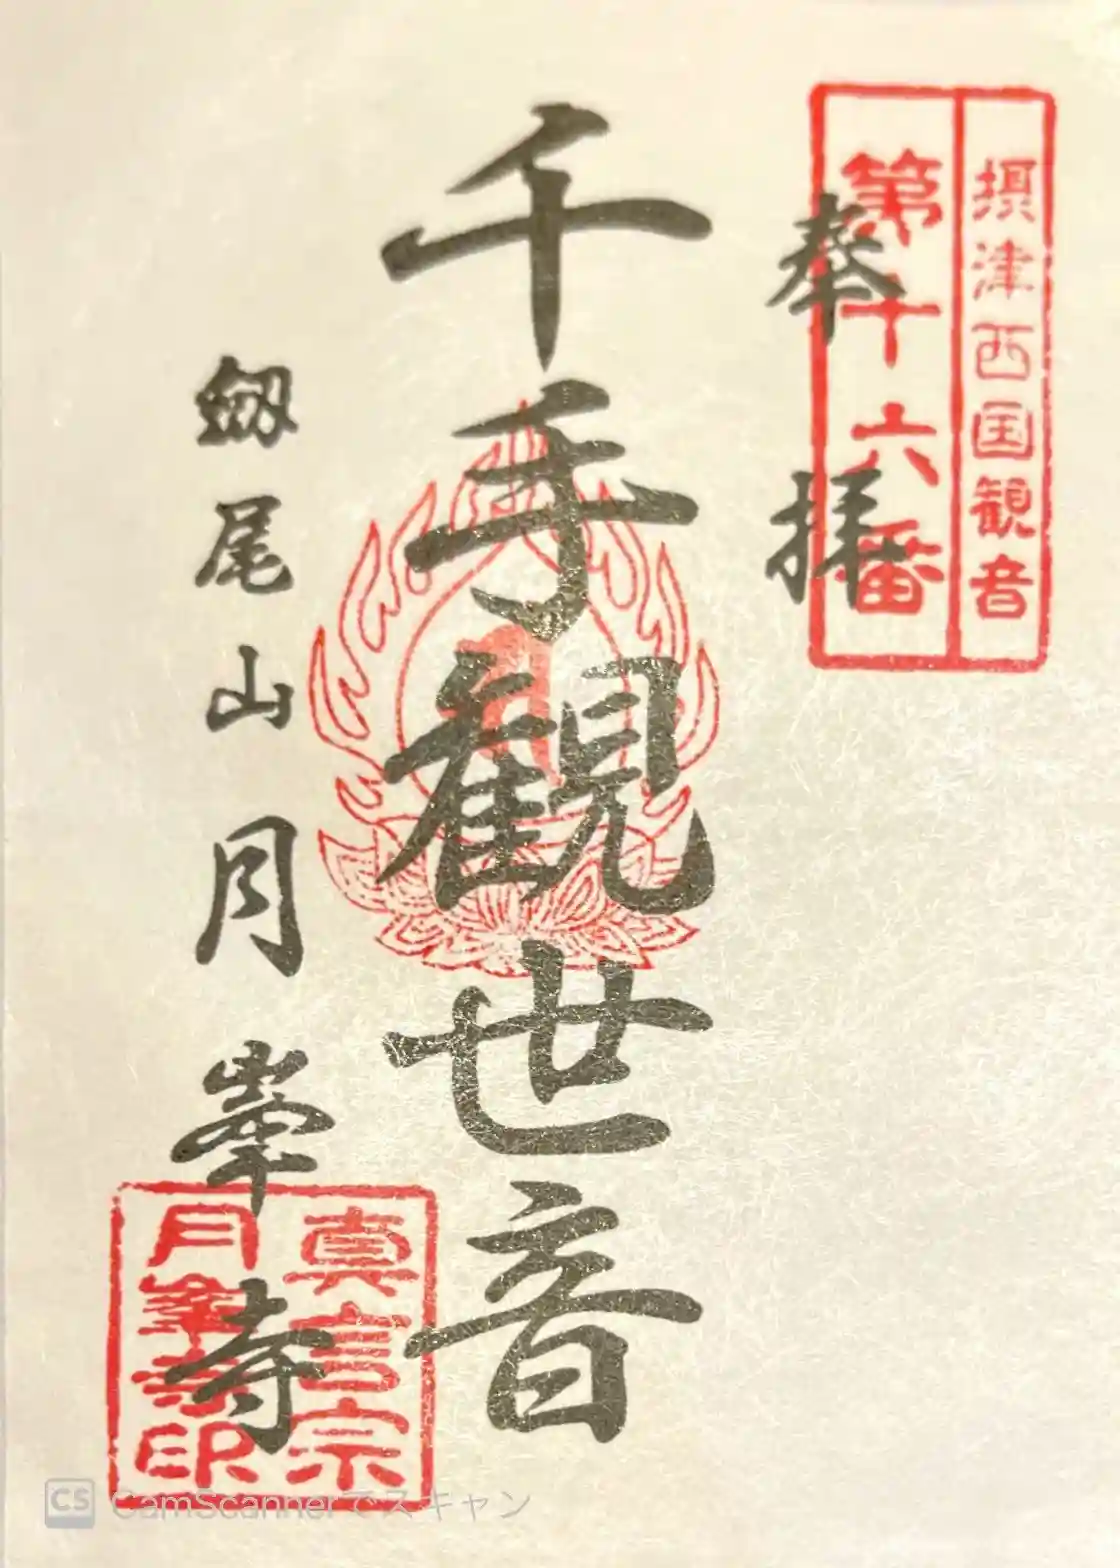 摂津西国観音
第十六番
奉拝
千手観世音
劔尾山月峯寺
真言宗
月峯寺印
CS CamScannerでスキャン